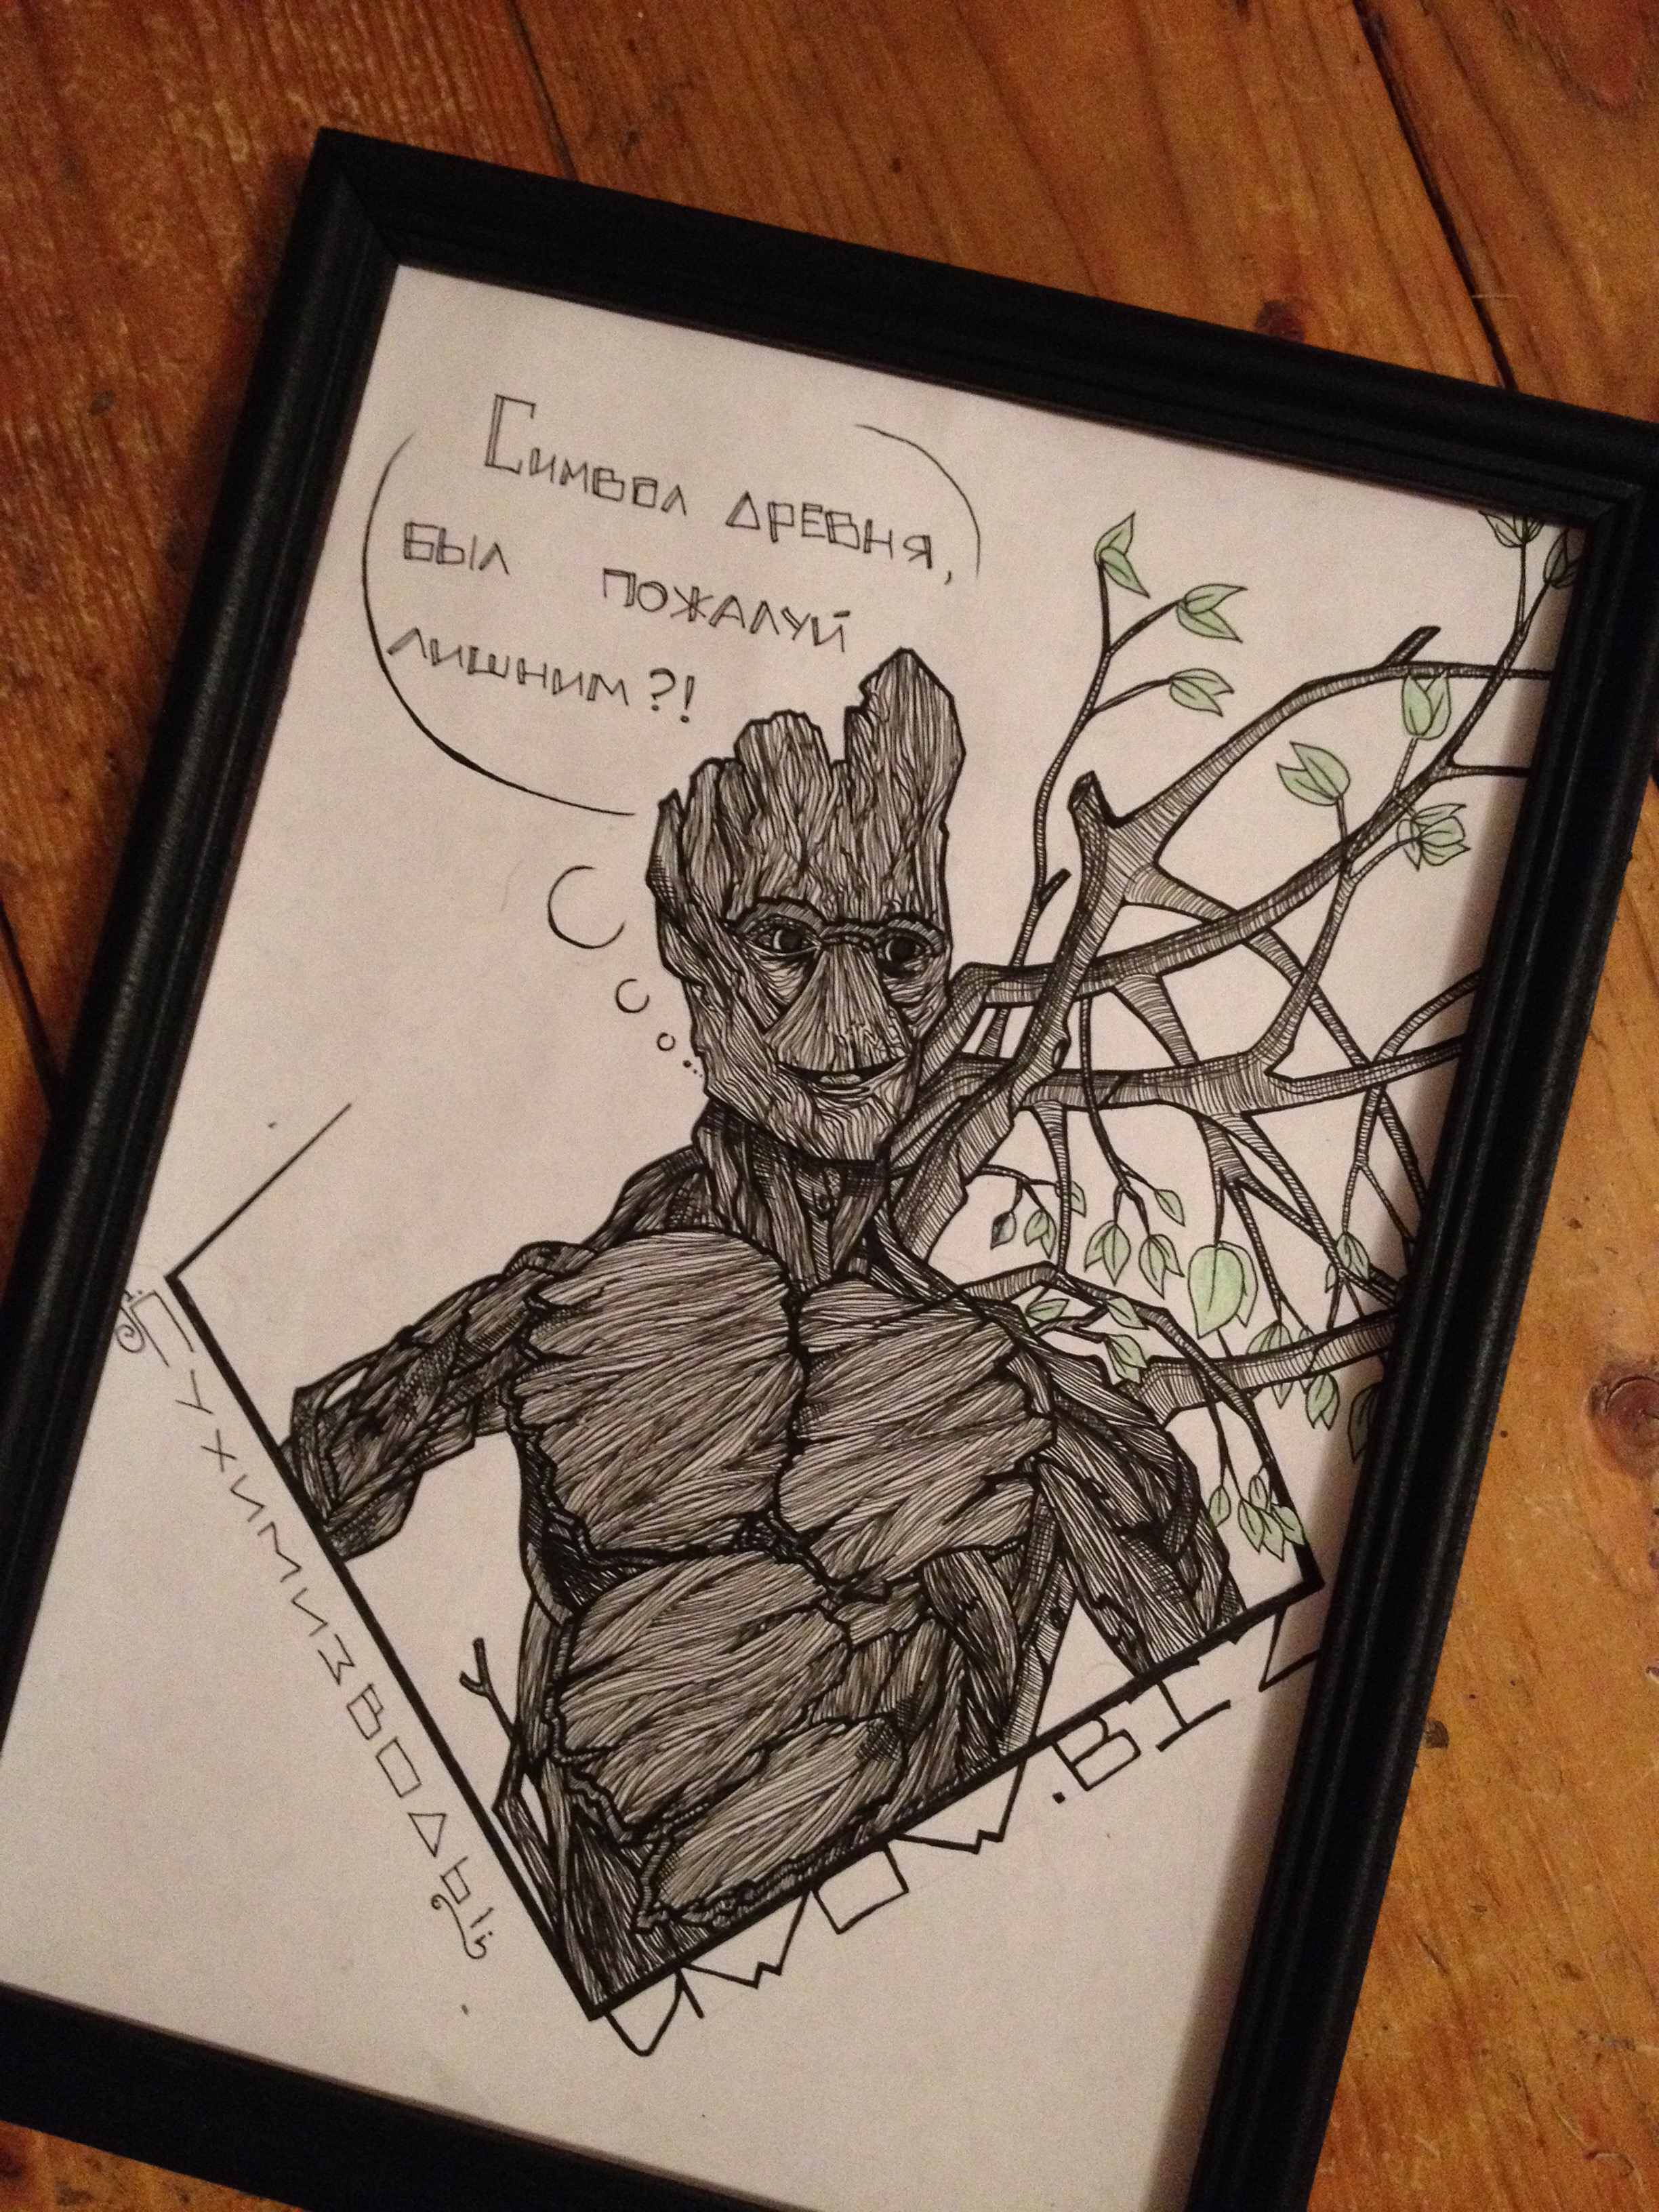 Символ древня,
был пожалуй
лишним?!
ПУХИМИЗВОДЫ